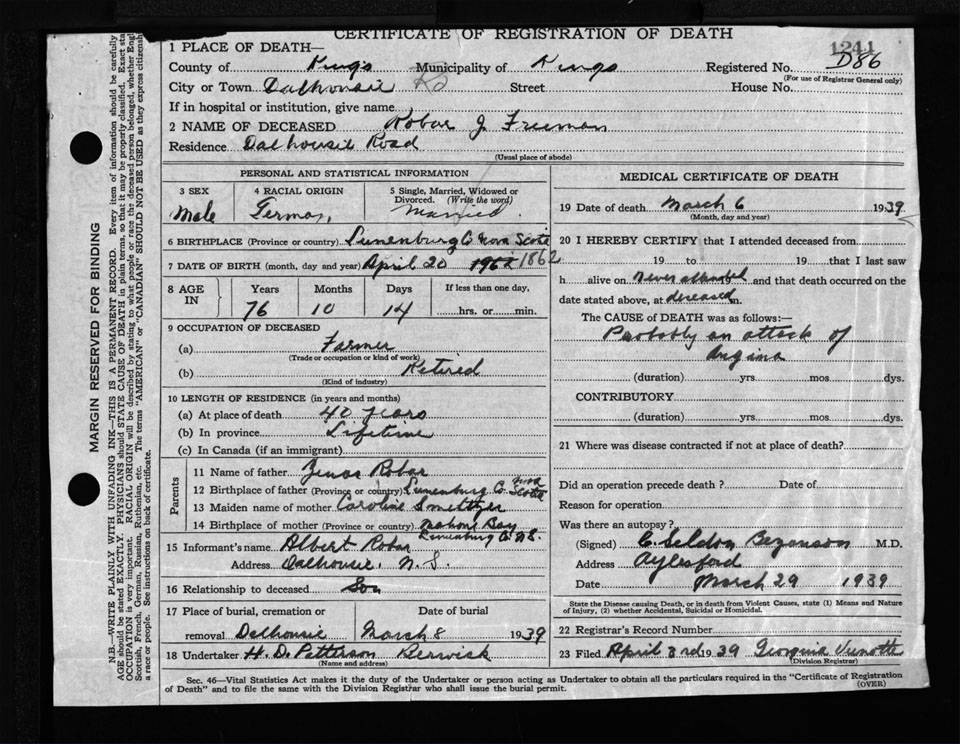 CERTIFICATE OF REGISTRATION OF DEATH
1241
1 PLACE OF DEATH—
County of Kings Municipality of Kings Registered No. D86
(For use of Registrar General only)
City or Town Dalhousie Rd Street House No.
If in hospital or institution, give name
2 NAME OF DECEASED Robar J. Freeman
Residence Dalhousie Road
(Usual place of abode)
PERSONAL AND STATISTICAL INFORMATION
3 SEX 4 RACIAL ORIGIN 5 Single, Married, Widowed or Divorced. (Write the word)
Male German Married
6 BIRTHPLACE (Province or country) Lunenburg Co Nova Scotia
7 DATE OF BIRTH (month, day and year) April 20 1862
8 AGE IN Years Months Days If less than one day,
76 10 14 hrs. or min.
9 OCCUPATION OF DECEASED
(a) Farmer
(Trade or occupation or kind of work)
(b) Retired
(Kind of industry)
10 LENGTH OF RESIDENCE (in years and months)
(a) At place of death 40 years
(b) In province Lifetime
(c) In Canada (if an immigrant)
Parents
11 Name of father Zenas Robar
12 Birthplace of father (Province or country) Lunenburg Co. Nova Scotia
13 Maiden name of mother Caroline Smeltzer
14 Birthplace of mother (Province or country) Mahone Bay
Lunenburg Co. N.S.
15 Informant's name Albert Robar
Address Dalhousie, N.S.
16 Relationship to deceased Son
17 Place of burial, cremation or Date of burial
removal Dalhousie March 8 1939
18 Undertaker H. D. Patterson Berwick
(Name and address)
MEDICAL CERTIFICATE OF DEATH
19 Date of death March 6 1939
(Month, day and year)
20 I HEREBY CERTIFY that I attended deceased from
19 to 19 that I last saw
h alive on never attended 19 and that death occurred on the
date stated above, at deceased m.
The CAUSE of DEATH was as follows:—
Probably an attack of
Angina
(duration) yrs. mos. dys.
CONTRIBUTORY
(duration) yrs. mos. dys.
21 Where was disease contracted if not at place of death?
Did an operation precede death? Date of
Reason for operation
Was there an autopsy?
(Signed) C. Seldon Bezanson M.D.
Address Aylesford
Date March 29 1939
State the Disease causing Death, or in death from Violent Causes, state (1) Means and Nature
of Injury, (2) whether Accidental, Suicidal or Homicidal.
22 Registrar's Record Number
23 Filed April 3rd 1939 Georgina
(Division Registrar)
Sec. 46—Vital Statistics Act makes it the duty of the Undertaker or person acting as Undertaker to obtain all the particulars required in the "Certificate of Registration
of Death" and to file the same with the Division Registrar who shall issue the burial permit.
(OVER)
MARGIN RESERVED FOR BINDING
N.B.—WRITE PLAINLY WITH UNFADING INK—THIS IS A PERMANENT RECORD. Every item of information should be carefully
AGE should be stated EXACTLY. PHYSICIANS should STATE CAUSE OF DEATH in plain terms, so that it may be properly classified. Exact sta
OCCUPATION is very important. RACIAL ORIGIN will be described by stating to what people or race the deceased person belonged, whether Engl
Scottish, French, German, Russian, Ruthenian, etc. The terms "AMERICAN" or "CANADIAN" SHOULD NOT BE USED as they express citizensh
a race or people. See instructions on back of certificate.